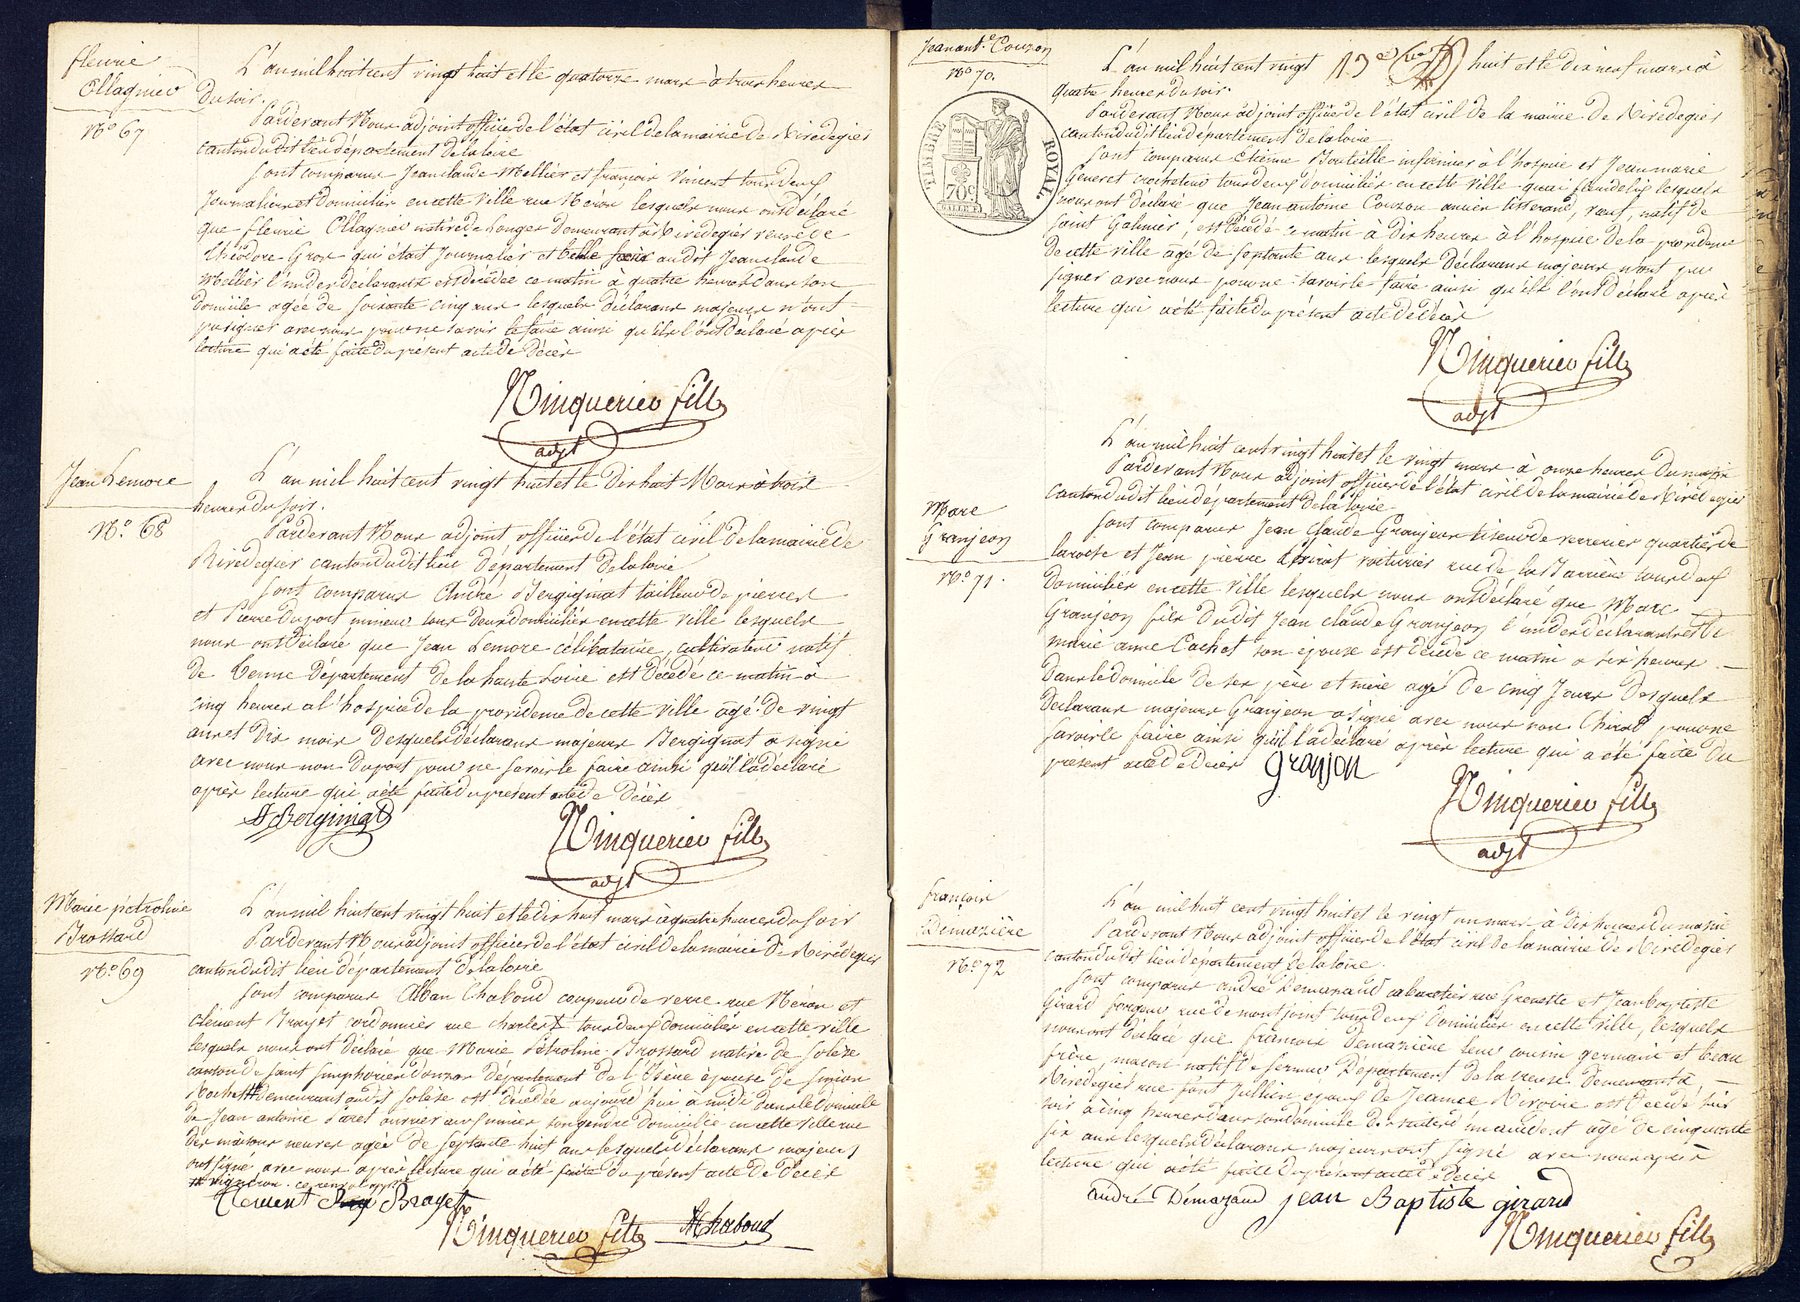 fleurie
Ollagnier
N.o 67
L'an mil huit cent vingt huit et le quatorze mars à trois heures
du soir.
Pardevant Nous adjoint officier de l'état civil de la mairie de Rivedegier
canton dudit lieu département de la loire
sont comparus Jean claude Mellier et françois Vincent tous deux
Journaliers et domiciliés en cette ville rue Néron lesquels nous ont déclaré
que fleurie Ollagnier native de Longes demeurant à Rivedegier veuve de
Théodore Gros qui était Journalier et belle sœur audit Jean claude
Mellier l'un des déclarants est décédée ce matin à quatre heures dans son
domicile agée de soixante cinq ans lesquels déclarans majeurs n'ont
pu signer avec nous pour ne savoir le faire ainsi qu'ils l'ont déclaré après
lecture qui a été faite du présent acte de décès
Ninquerier fils
adjt
Jean Lemore
N.o 68
L'an mil huit cent vingt huit et le dix huit Mars à trois
heures du soir.
Pardevant Nous adjoint officier de l'état civil de la mairie de
Rivedegier canton dudit lieu département de la loire
sont comparus André Bergignat tailleur de pierres
et Pierre Duport mineur tous deux domiciliés en cette ville lesquels
nous ont déclaré que Jean Lemore célibataire, cultivateur natif
de département de la haute Loire est décédé ce matin à
cinq heures à l'hospice de la providence de cette ville agé de vingt
ans et dix mois desquels déclarans majeurs Bergignat a signé
avec nous non Duport pour ne savoir le faire ainsi qu'il l'a déclaré
après lecture qui a été faite du présent acte de décès
Ninquerier fils
adjt
Marie pétroline
Brossard
N.o 69
L'an mil huit cent vingt huit et le dix huit mars à quatre heures du soir
Pardevant Nous adjoint officier de l'état civil de la mairie de Rivedegier
canton dudit lieu département de la loire
sont comparus Alban Chaboud coupeur de verre rue Néron et
clément Brayet cordonnier rue charles X tous deux domiciliés en cette ville
lesquels nous ont déclaré que Marie Pétroline Brossard native de Solèze
canton de saint simphorien Douzon département de l'Isère épouse de simon
Rochat # demeurant audit solèze est décédée aujourd'hui à midi dans le domicile
de Jean antoine Paret ouvrier aux son gendre domicilié en cette ville rue
des maisons neuves agée de septante huit ans lesquels déclarans majeurs
ont signé avec nous après lecture qui a été faite du présent acte de décès
# vigneron. ce renvoi app.vé
Clement Brayet
Ninquerier fils AChaboud
Jean ant.e Couzon
N.o 70.
TIMBRE ROYAL
70c
L'an mil huit cent vingt huit et le dix neuf mars à
quatre heures du soir.
Pardevant Nous adjoint officier de l'état civil de la mairie de Rivedegier
canton dudit lieu département de la loire
sont comparus Etienne Bouteille infirmier à l'hospice et Jean marie
Genevet crocheteur tous deux domiciliés en cette ville quai lesquels
nous ont déclaré que Jean antoine Couzon ancien tisserand, veuf, natif de
saint Galmier, est décédé ce matin à dix heures à l'hospice de la providence
de cette ville agé de septante ans lesquels déclarans majeurs n'ont pu
signer avec nous pour ne savoir le faire ainsi qu'ils l'ont déclaré après
lecture qui a été faite du présent acte de décès
Ninquerier fils
adjt
Marc
Granjeon
N.o 71.
L'an mil huit cent vingt huit et le vingt mars à onze heures du matin
Pardevant Nous adjoint officier de l'état civil de la mairie de Rivedegier
canton dudit lieu département de la loire
sont comparus Jean Claude Granjeon tiseur de verrerier quartier de
laroche et Jean pierre voiturier rue de la Barrière tous deux
domiciliés en cette Ville lesquels nous ont déclaré que Marc
Granjeon fils dudit Jean claude Granjeon l'un des déclarants et de
marie anne Cachet son épouse est décédé ce matin à six heures
dans le domicile de ses père et mère agé de cinq Jours desquels
déclarans majeurs Granjeon a signé avec nous non pour ne
savoir le faire ainsi qu'il l'a déclaré après lecture qui a été faite du
présent acte de décès
Granjon
Ninquerier fils
adjt
françois
Demazière
N.o 72
L'an mil huit cent vingt huit et le vingt un mars à dix heures du matin
Pardevant Nous adjoint officier de l'état civil de la mairie de Rivedegier
canton dudit lieu département de la loire.
sont comparus andré Demazaud cabaretier rue Grenette et Jean baptiste
Girard forgeur rue de montjoint tous deux domiciliés en cette ville, lesquels
nous ont déclaré que françois Demazière leur cousin germain et beau
frère, maçon natif de département de la creuse demeurant à
Rivedegier rue saint Jullien, époux de Jeanne est décédé hier
soir à cinq heures dans son domicile agé de cinquante
six ans lesquels déclarans majeurs ont signé avec nous après
lecture qui a été faite du présent acte de décès
andré Démazaud jean Baptiste girard
Ninquerier fils